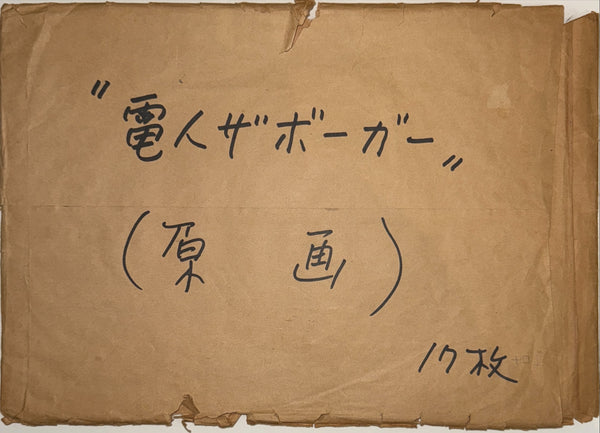 〃電人ザボーガー〃
(原 画)
17枚